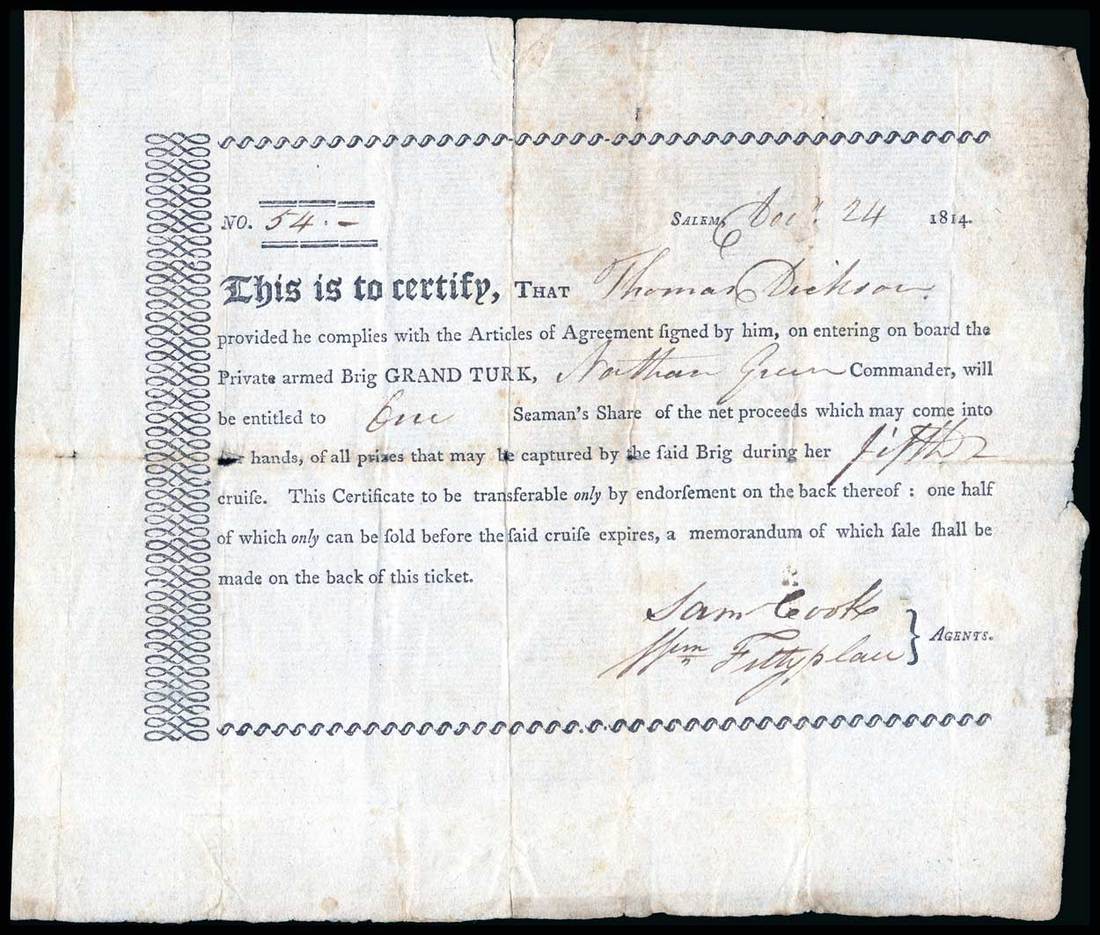 NO. 54.- SALEM, Decr. 24 1814.
This is to certify, THAT Thomas Dickson.
provided he complies with the Articles of Agreement ſigned by him, on entering on board the
Private armed Brig GRAND TURK, Nathan Green Commander, will
be entitled to One Seaman's Share of the net proceeds which may come into
hands, of all prizes that may be captured by the ſaid Brig during her fifth
cruiſe. This Certificate to be transferable only by endorſement on the back thereof : one half
of which only can be ſold before the ſaid cruiſe expires, a memorandum of which ſale ſhall be
made on the back of this ticket.
Sam Cook
Wm Fettyplace } AGENTS.